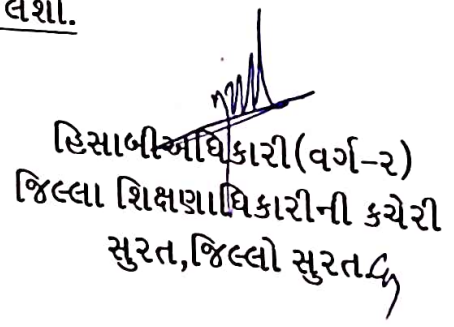 લેશો.
હિસાબીઅધિકારી(વર્ગ-૨)
જિલ્લા શિક્ષણાધિકારીની કચેરી
સુરત,જિલ્લો સુરત